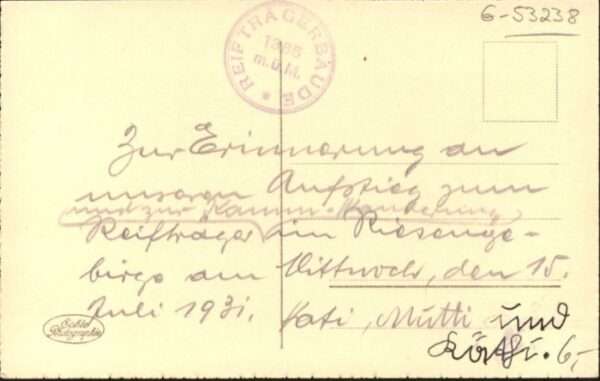 6-53238
REIFTRÄGERBAUDE
1366
m.ü.M.
Zur Erinnerung an
unseren Aufstieg zum
und zur Kamm-Wanderung,
Reifträger im Riesenge-
birge am Mittwoch, den 15.
Juli 1931. Vati, Mutti und
Käthi. 6,-
Echte
Photographie